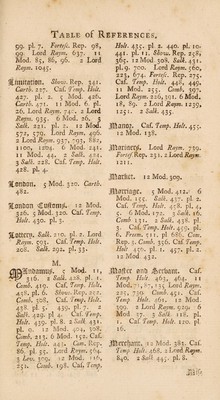 TABLE OF REFERENCES.
99. pl. 7. Fortesc. Rep. 98,
99. Lord Raym. 637. 11
Mod. 85, 86, 96. 2 Lord
Raym. 1045.
Limitation. Show. Rep. 341.
Carth. 227. Cas. Temp. Holt.
427. pl. 2. 5 Mod. 426.
Carth. 471. 11 Mod. 6. pl.
26. Lord Raym. 741. 2 Lord
Raym. 935. 6 Mod. 26. 3
Salk. 221. pl. 2. 12 Mod.
572, 579. Lord Raym. 496.
2 Lord Raym. 937, 793, 882,
1100, 1119. 6 Mod. 241.
11 Mod. 44. 2 Salk. 421.
3 Salk. 228. Cas. Temp. Holt.
428. pl. 4.
London. 5 Mod. 320. Carth.
482.
London Customs. 12 Mod.
326. 5 Mod. 320. Cas. Temp.
Holt. 430. pl. 3.
Lottery. Salk. 210. pl. 2. Lord
Raym. 593. Cas. Temp. Holt.
208. Salk. 292. pl. 33.
M.
Mandamus. 5 Mod. 11,
316. 2 Salk. 428. pl. 1.
Comb. 419. Cas. Temp. Holt.
438. pl. 6. Show. Rep. 282.
Comb. 308. Cas. Temp. Holt.
438. pl. 5. 439. pl. 7. 2
Salk. 429. pl. 4. Cas. Temp.
Holt. 439. pl. 8. 2 Salk. 431.
pl. 9. 12 Mod. 404, 308.
Comb. 213. 6 Mod. 152. Cas.
Temp. Holt. 442. Com. Rep.
86. pl. 35. Lord Raym. 564.
3 Lev. 309. 12 Mod. 116,
251. Comb. 198. Cas. Temp.
Holt. 435. pl. 2. 440. pl. 10.
441. pl. 11. Show. Rep. 258,
365. 12 Mod. 308. Salk. 431.
pl. 9. 700. Lord Raym. 560,
223, 674. Fortesc. Rep. 275.
Cas. Temp. Holt. 448, 449.
11 Mod. 255. Comb. 397.
Lord Raym. 226, 191. 6 Mod.
18, 89. 2 Lord Raym. 1239,
1251. 2 Salk. 435.
Manor. Cas. Temp. Holt. 455.
12 Mod. 138.
Mariners. Lord Raym. 739.
Fortesc. Rep. 231. 2 Lord Raym.
1211.
Market. 12 Mod. 309.
Mortgage. 5 Mod. 412. 6
Mod. 155. Salk. 437. pl. 2.
Cas. Temp. Holt. 478. pl. 4,
5. 6 Mod. 172. 3 Salk. 16.
Comb. 131. 2 Salk. 438. pl.
3. Cas. Temp. Holt. 469. pl.
6. Freem. 151. pl. 686. Com.
Rep. 3. Comb. 356. Cas. Temp.
Holt. 456. pl. 1. 457. pl. 2.
12 Mod. 432.
Master and Servant. Cas.
Temp. Holt. 463, 464. 11
Mod. 71, 87, 135. Lord Raym.
225, 739. Comb. 451. Cas.
Temp. Holt. 461. 12 Mod.
309. 2 Lord Raym. 930. 6
Mod. 37. 2 Salk. 118. pl.
1. Cas. Temp. Holt. 120. pl.
16.
Merchant. 12 Mod. 285. Cas.
Temp. Holt. 468. 2 Lord Raym.
840. 2 Salk. 445. pl. 8.